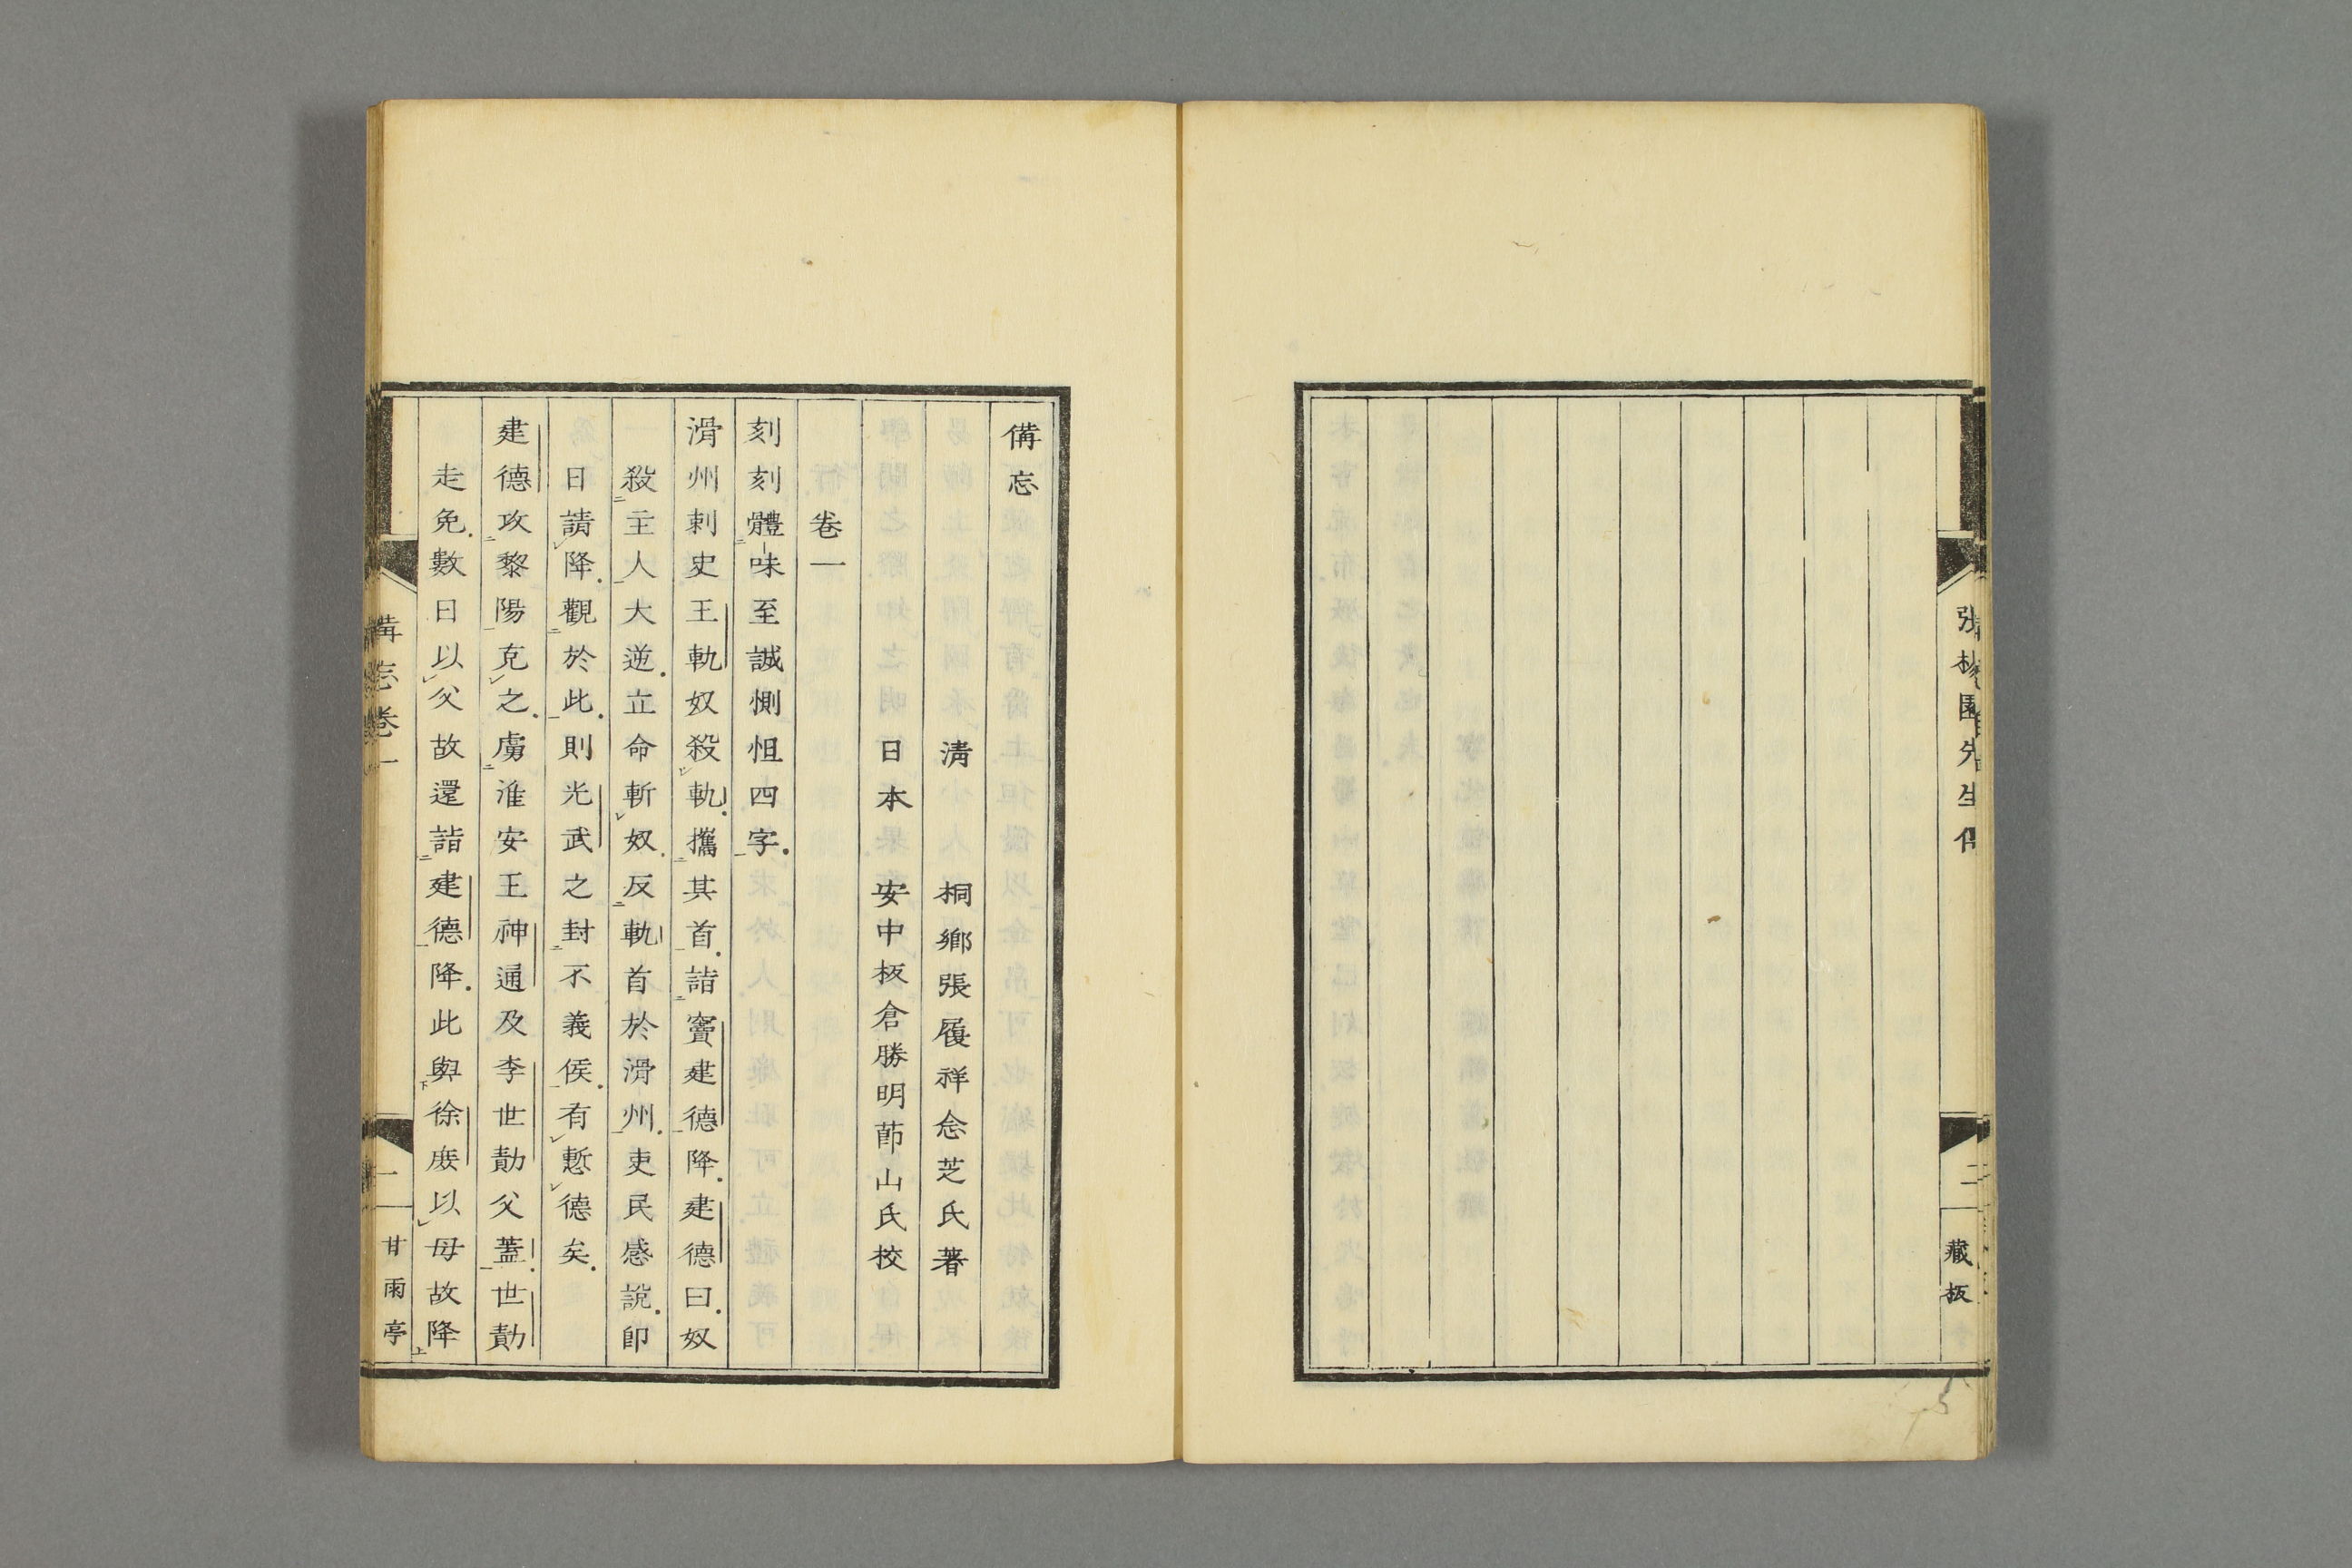 張楊園先生傳
二
藏板
備忘
清　桐鄉張履祥念芝氏著
日本　安中板倉勝明節山氏校
卷一
刻刻體味至誠惻怛四字.
滑州刺史王軌奴殺軌.攜其首.詣竇建德降.建德曰.奴
殺主人大逆.立命斬奴.反軌首於滑州.吏民感說.即
日請降.觀於此.則光武之封不義侯.有慙德矣.
建德攻黎陽克之.虜淮安王神通及李世勣父蓋.世勣
走免.數日以父故還詣建德降.此與徐庶以母故降
備忘卷一
一
甘雨亭